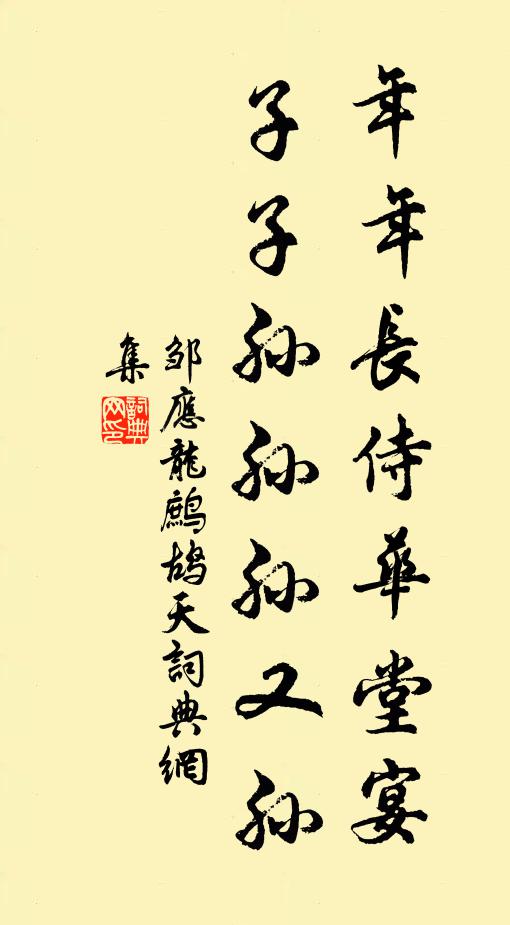 年年長侍華堂宴
子子孙孙孙又孙
邹應龍鷓鴣天詞典網
集
詞典网印